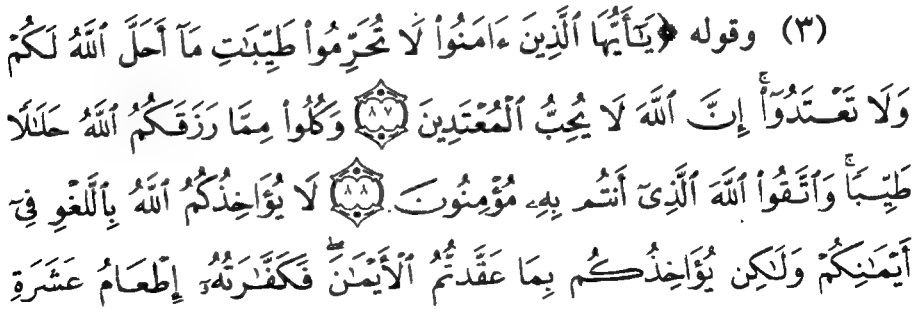 (٣) وقوله ﴿يَـٰٓأَيُّهَا ٱلَّذِينَ ءَامَنُوا۟ لَا تُحَرِّمُوا۟ طَيِّبَـٰتِ مَآ أَحَلَّ ٱللَّهُ لَكُمْ
وَلَا تَعْتَدُوٓا۟ ۚ إِنَّ ٱللَّهَ لَا يُحِبُّ ٱلْمُعْتَدِينَ ۝٨٧ وَكُلُوا۟ مِمَّا رَزَقَكُمُ ٱللَّهُ حَلَـٰلًا
طَيِّبًا ۚ وَٱتَّقُوا۟ ٱللَّهَ ٱلَّذِىٓ أَنتُم بِهِۦ مُؤْمِنُونَ ۝٨٨ لَا يُؤَاخِذُكُمُ ٱللَّهُ بِٱللَّغْوِ فِىٓ
أَيْمَـٰنِكُمْ وَلَـٰكِن يُؤَاخِذُكُم بِمَا عَقَّدتُّمُ ٱلْأَيْمَـٰنَ ۖ فَكَفَّـٰرَتُهُۥٓ إِطْعَامُ عَشَرَةِ